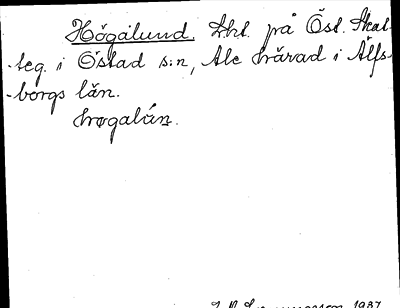 Högalund. Lht. på Öst. Skat-
teg. i Östad s:n, Ale härad i Älfs-
-borgs län.
høgalún.
1937